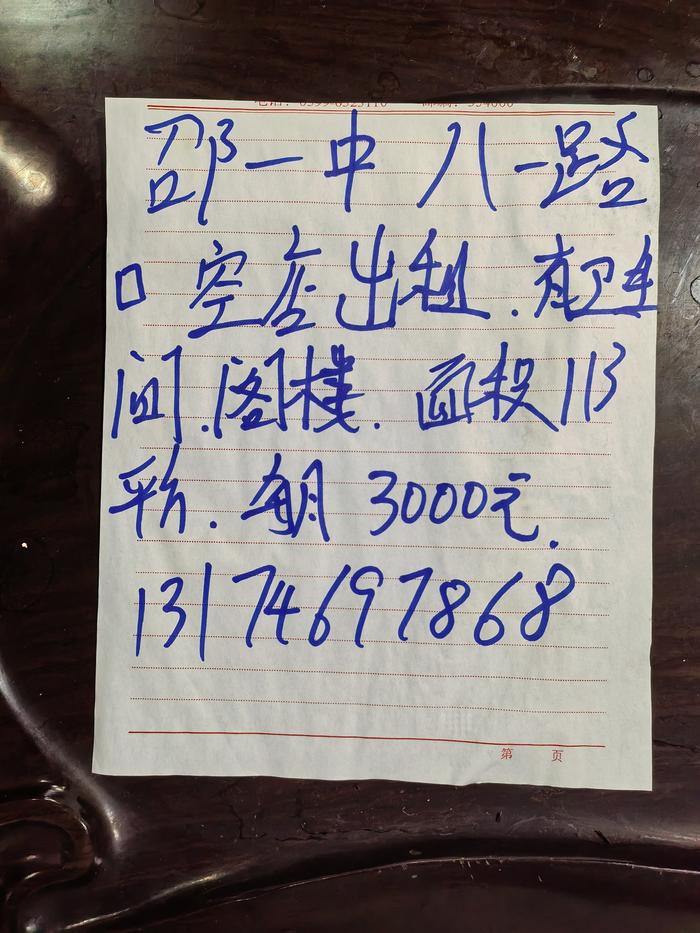 邵一中八一路
口空店出租.有卫生
间.阁楼.面积113
平方.每月3000元.
13174697868
第 页